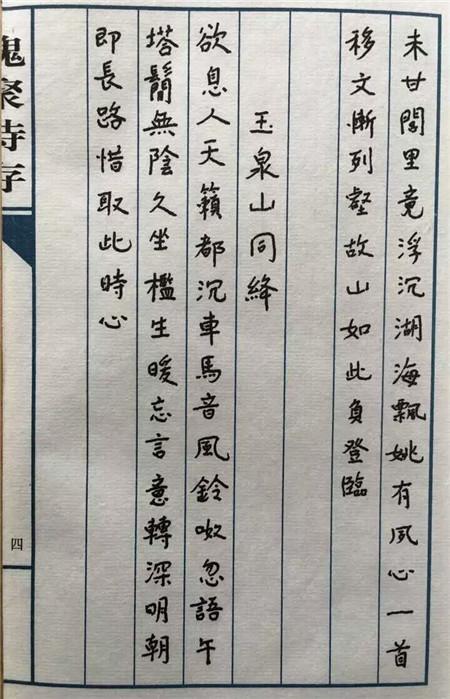 未甘閭里竟浮沉湖海飄姚有夙心一首
移文慚列壑故山如此負登臨
玉泉山同絳
欲息人天籟都沉車馬音風鈴呶忽語午
塔鬜無陰久坐檻生暖忘言意轉深明朝
即長路惜取此時心
槐聚詩存
四